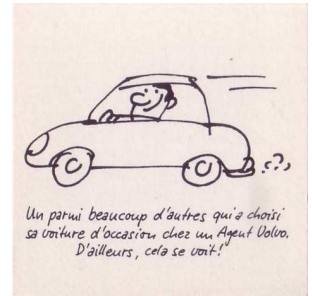 ?
Un parmi beaucoup d'autres qui a choisi
sa voiture d'occasion chez un Agent Volvo.
D'ailleurs, cela se voit!